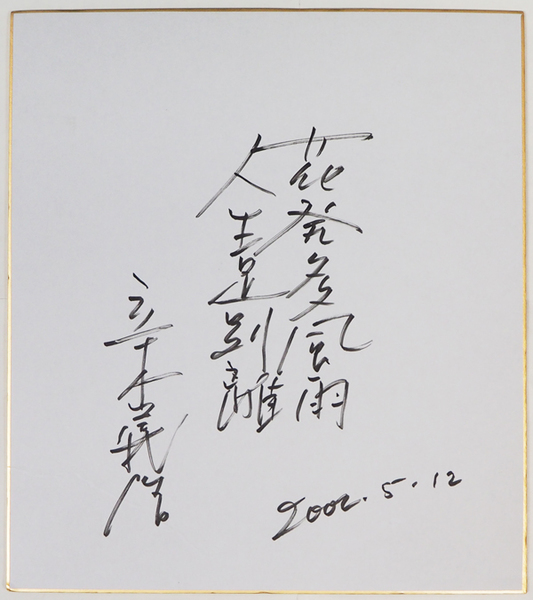 花発多風雨
人生足別離
立木義浩
2002.5.12